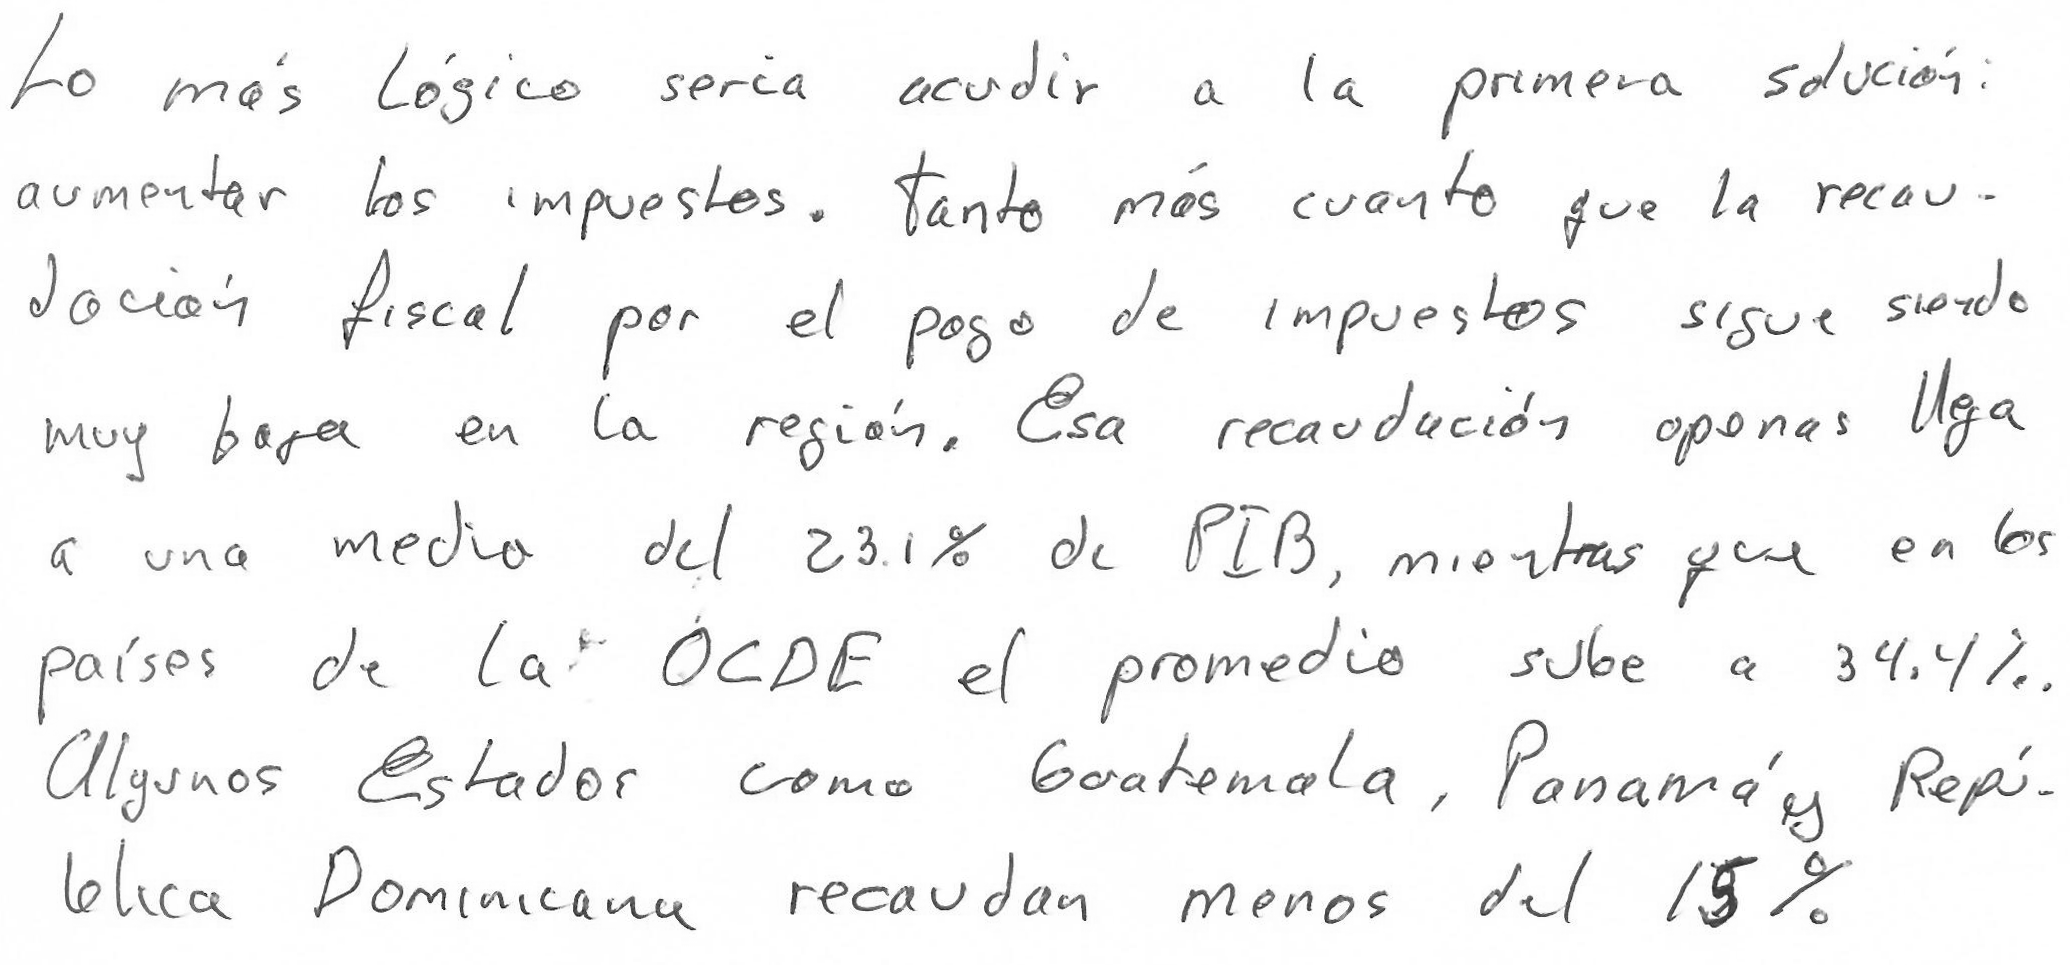 Lo más lógico seria acudir a la primera solución:
aumentar los impuestos. Tanto más cuanto que la recau-
dación fiscal por el pago de impuestos sigue siendo
muy baja en la región. Esa recaudación apenas llega
a una media del 23.1% de PIB, mientras que en los
países de la OCDE el promedio sube a 34.4%.
Algunos Estados como Guatemala, Panamá y Repú-
blica Dominicana recaudan menos del 15%